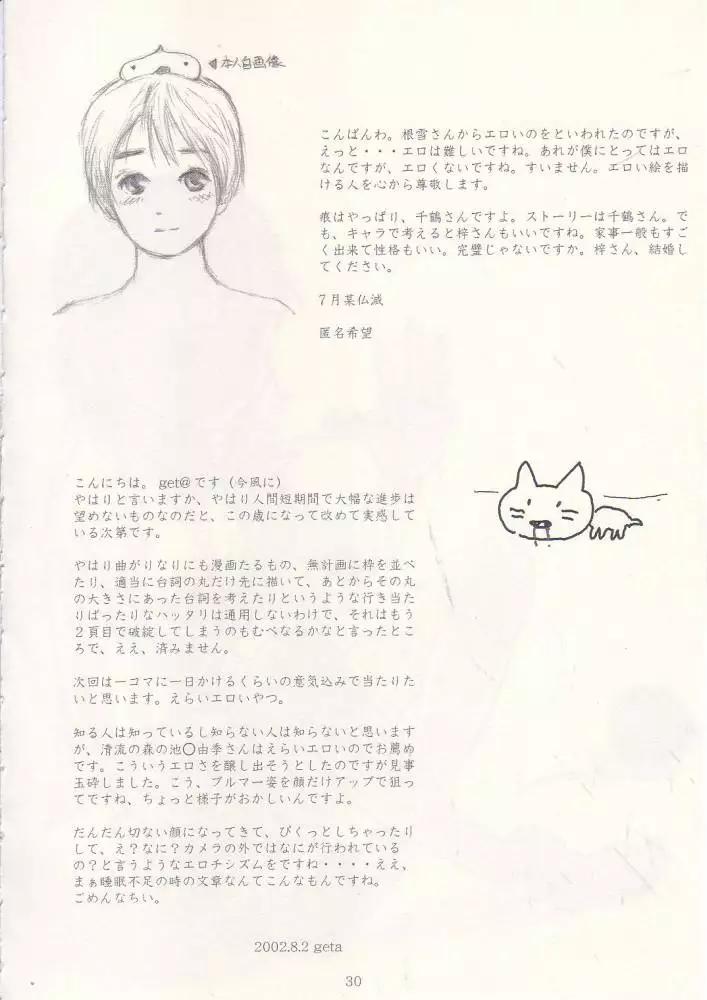 ◀本人自画像
こんばんわ。根雪さんからエロいのをといわれたのですが、
えっと・・・エロは難しいですね。あれが僕にとってはエロ
なんですが、エロくないですね。すいません。エロい絵を描
ける人を心から尊敬します。
痕はやっぱり、千鶴さんですよ。ストーリーは千鶴さん。で
も、キャラで考えると梓さんもいいですね。家事一般もすご
く出来て性格もいい。完璧じゃないですか。梓さん、結婚し
てください。
7月某仏滅
匿名希望
こんにちは。 get@です（今風に）
やはりと言いますか、やはり人間短期間で大幅な進歩は
望めないものなのだと、この歳になって改めて実感して
いる次第です。
やはり曲がりなりにも漫画たるもの、無計画に枠を並べ
たり、適当に台詞の丸だけ先に描いて、あとからその丸
の大きさにあった台詞を考えたりというような行き当た
りばったりなハッタリは通用しないわけで、それはもう
２頁目で破綻してしまうのもむべなるかなと言ったとこ
ろで、ええ、済みません。
次回は一コマに一日かけるくらいの意気込みで当たりた
いと思います。えらいエロいやつ。
知る人は知っているし知らない人は知らないと思います
が、清流の森の池〇由季さんはえらいエロいのでお薦め
です。こういうエロさを醸し出そうとしたのですが見事
玉砕しました。こう、ブルマー姿を顔だけアップで狙っ
てですね、ちょっと様子がおかしいんですよ。
だんだん切ない顔になってきて、びくっとしちゃったり
して、え？なに？カメラの外ではなにが行われている
の？と言うようなエロチシズムをですね・・・・ええ、
まぁ睡眠不足の時の文章なんてこんなもんですね。
ごめんなちい。
2002.8.2 geta
30